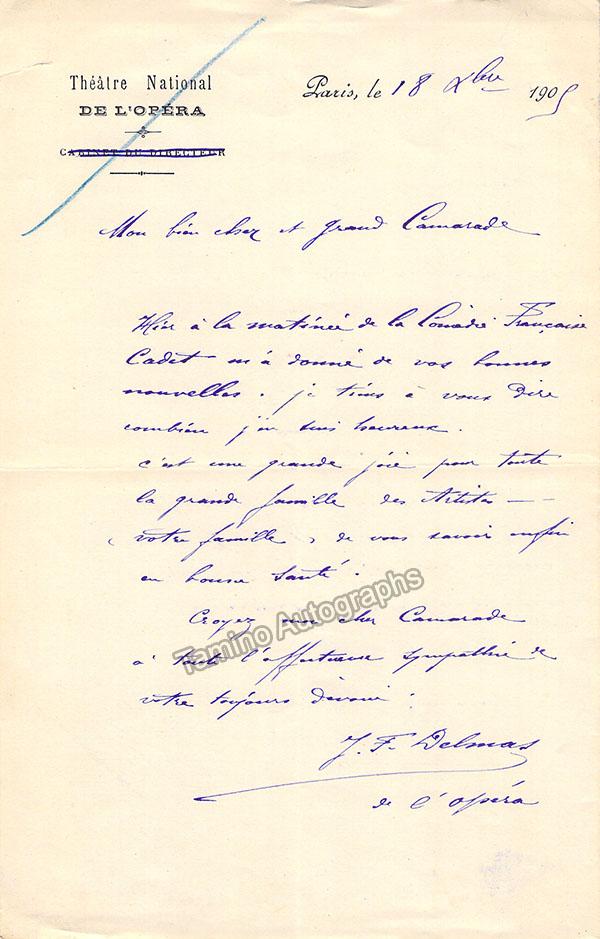 Théâtre National
DE L'OPÉRA
CABINET DU DIRECTEUR
Paris, le 18 Xbre 1905
Mon bien cher et grand Camarade
Hier à la matinée de la Comédie Française
Cadet m'a donné de vos bonnes
nouvelles. je tiens à vous dire
combien j'en suis heureux.
c'est une grande joie pour toute
la grande famille des Artistes —
(votre famille) de vous savoir enfin
en bonne santé.
Croyez mon cher Camarade
à toute l'affectueuse sympathie de
votre toujours dévoué.
J. F. Delmas
de l'opéra
Tamino Autographs